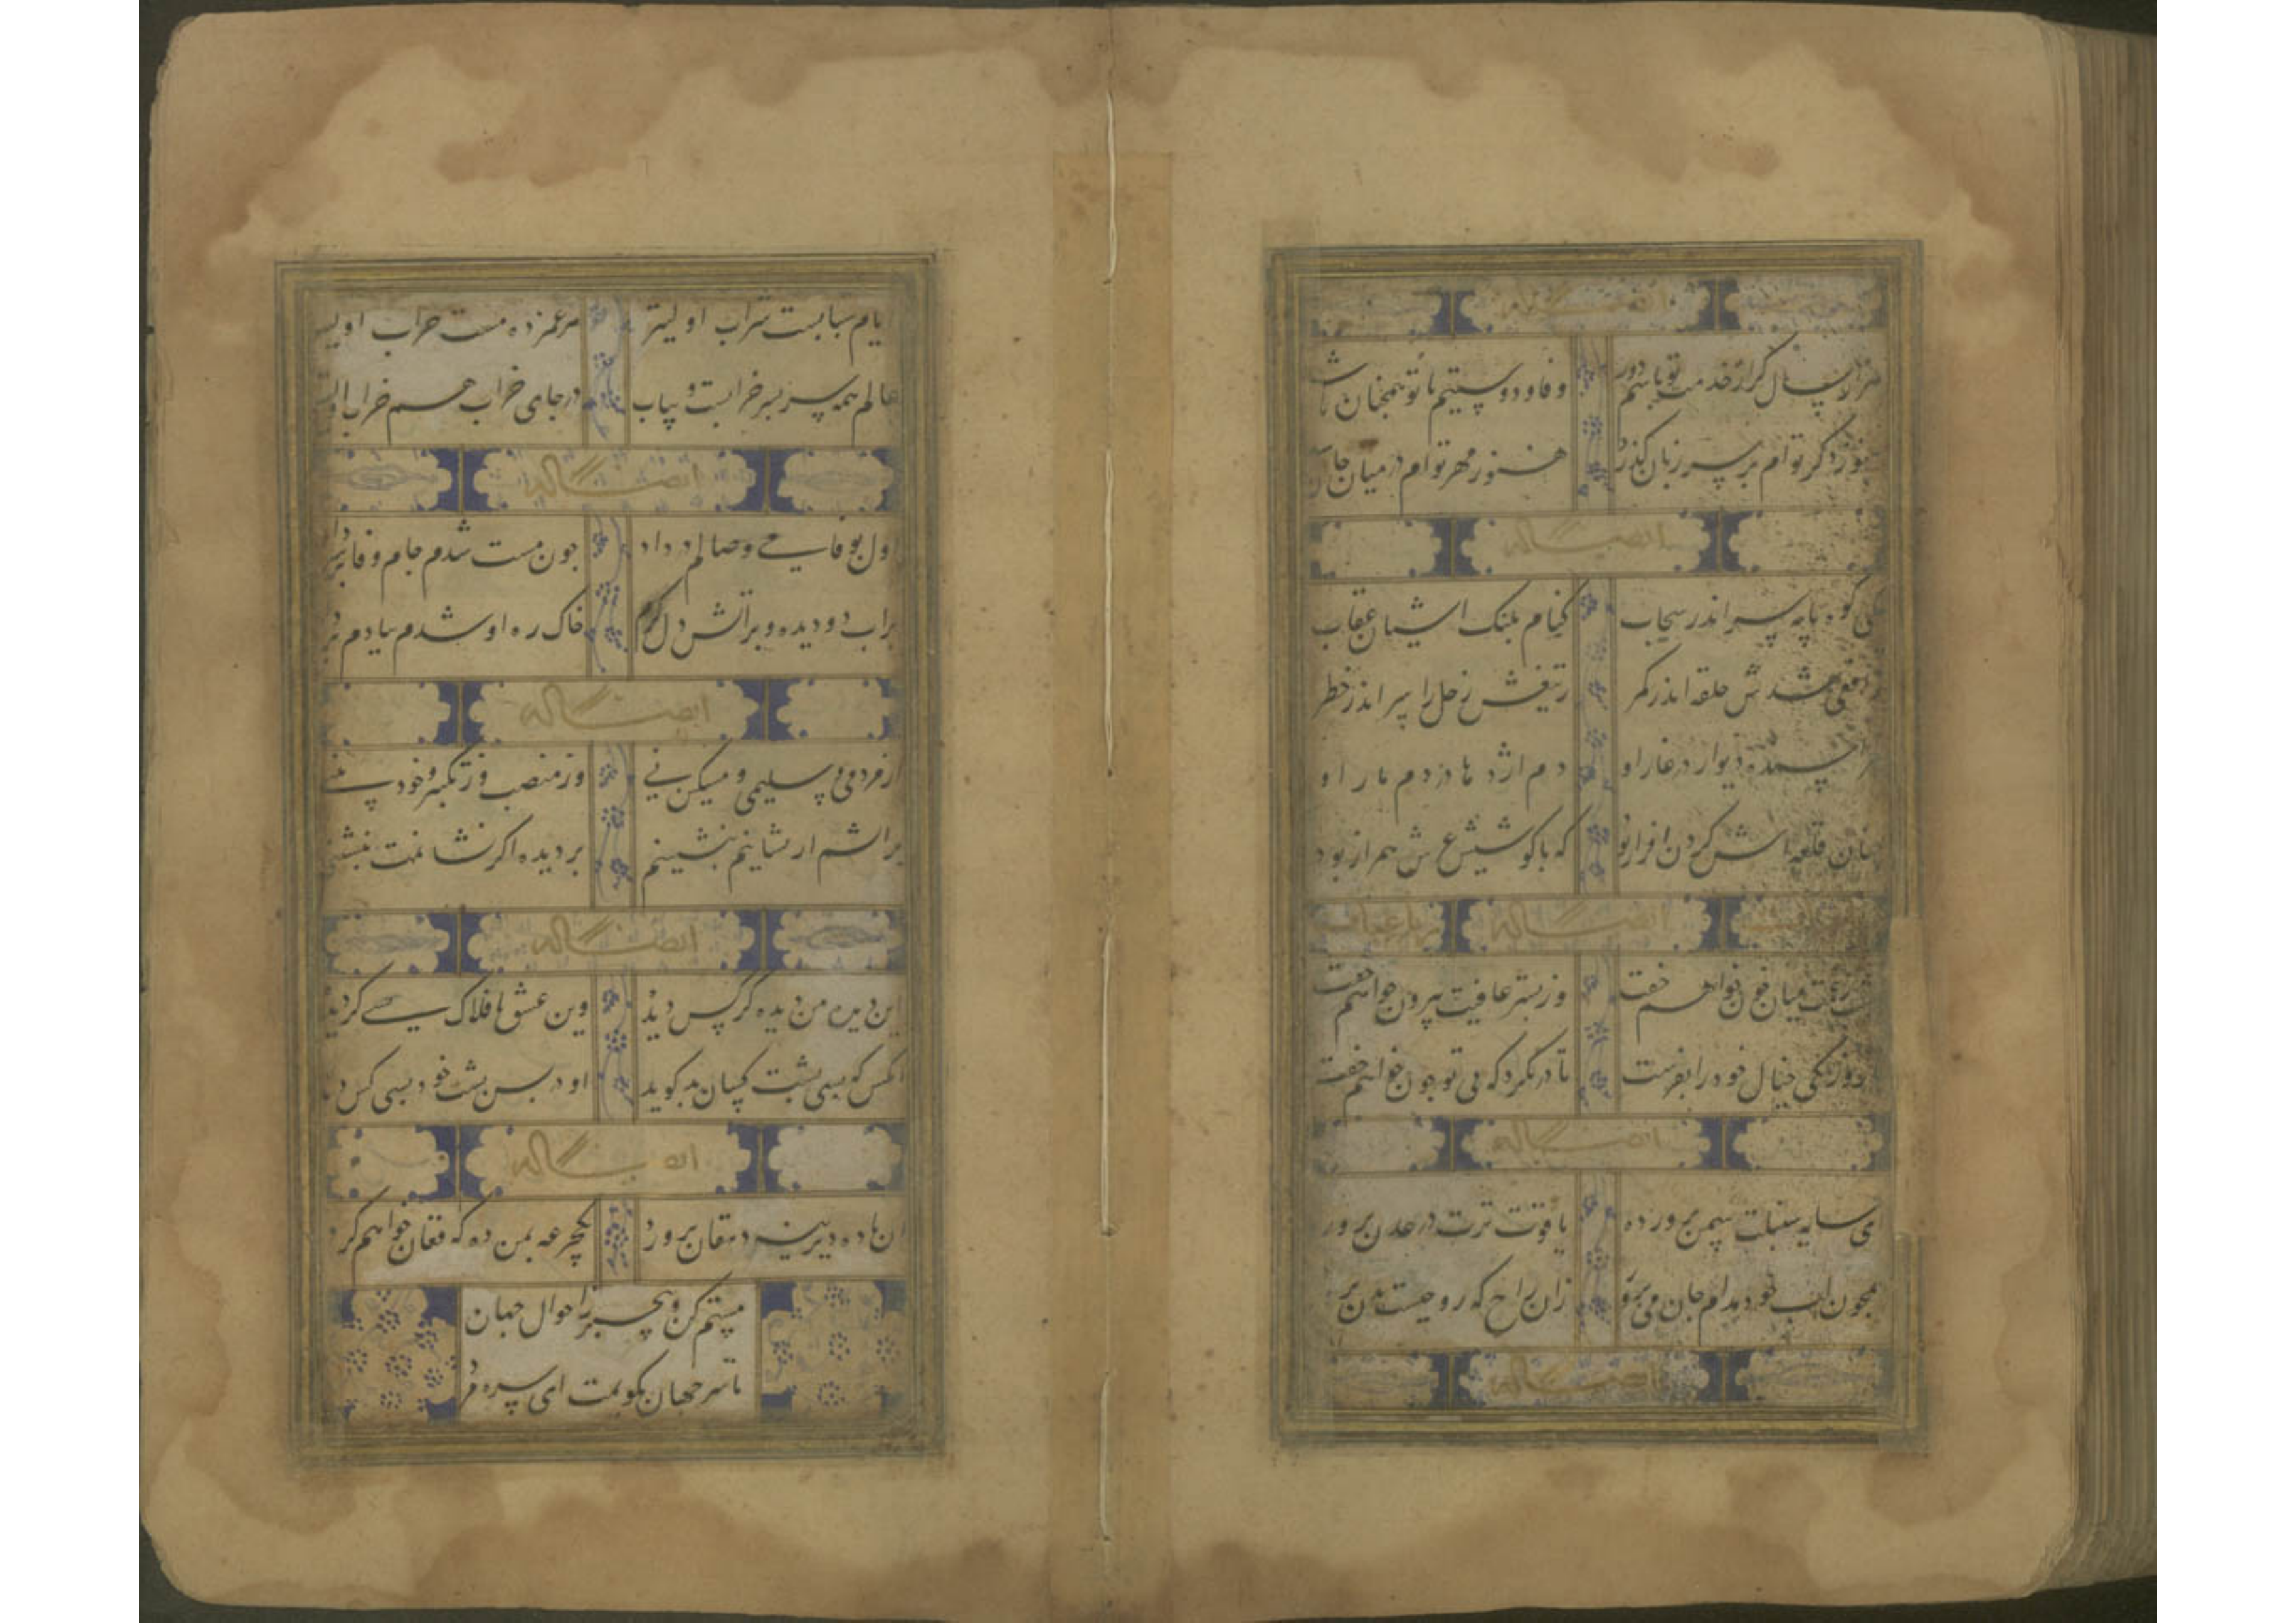 ایضاً له
هزار سال گر از خدمت تو باشم دور وفا و دوستیم با تو همچنان باشد
هنوز ذکر توام بر سر زبان گذرد هنوز مهر توام در میان جان باشد
ایضاً له
یکی کوه پایه سر اندر سحاب کنام پلنک اشیان عقاب
حلقه اندر کمر ز تیغش زحل را سر اندر خطر
دیوار در غار او دم اژدها در دم مار او
قلعه اش کردن افراز بود که با کوشش عرش همراز بود
ایضاً له رباعیات
میان خون خواهم خفت وز بستر عافیت برون خواهم خفت
خیال خود را بفرست تا در نکرد که بی تو چون خواهم خفت
ایضاً له
ای سایه سنبلت سمن پرورده یاقوت ترت در عدن پرورده
همچون لب خود مدام جان می پرور زان راح که روحیست بدن پرورده
ایضاً له
ایام شبابست شراب اولیتر هر غمزده مست خراب اولیتر
عالم همه سر بسر خرابست و یباب در جای خراب هم خراب اولیتر
ایضاً له
اول بوفا می وصالم درداد چون مست شدم جام جفا
بر اب دو دیده و بر اتش دل کرم خاک ره او شدم ببادم
ایضاً له
از مردمی و سلیمی و مسکینی وز منصب وز تکبر و خود بینی
بر اتشم ار نشانیم بنشینم بر دیده اکر نشانمت ننشینی
ایضاً له
این دیده من دیده کر پس دید وین عشق با فلاک بسی کردید
انکس که بسی پشت کسان بد کوید او در پس پشت خود بسی کس
ایضاً له
ان باده دیرینه دهقان پرور یکجرعه بمن ده که فغان خواهم کرد
مستم کن و بیخبر ز احوال جهان
تا سر جهان بکویمت ای سره مرد